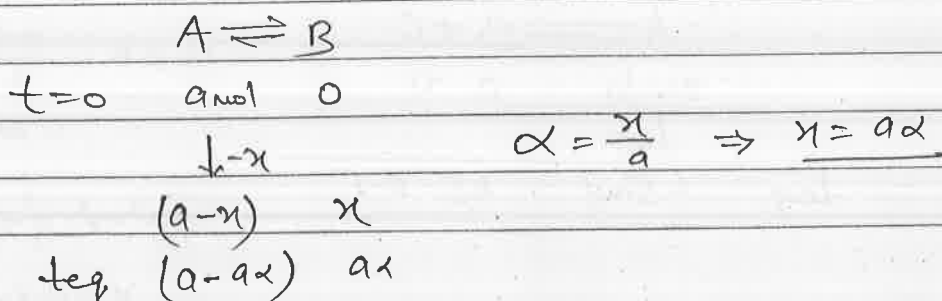 A ⇌ B
t=0 a mol 0
↓-x α = x/a ⇒ x = aα
(a-x) x
teq (a-aα) aα